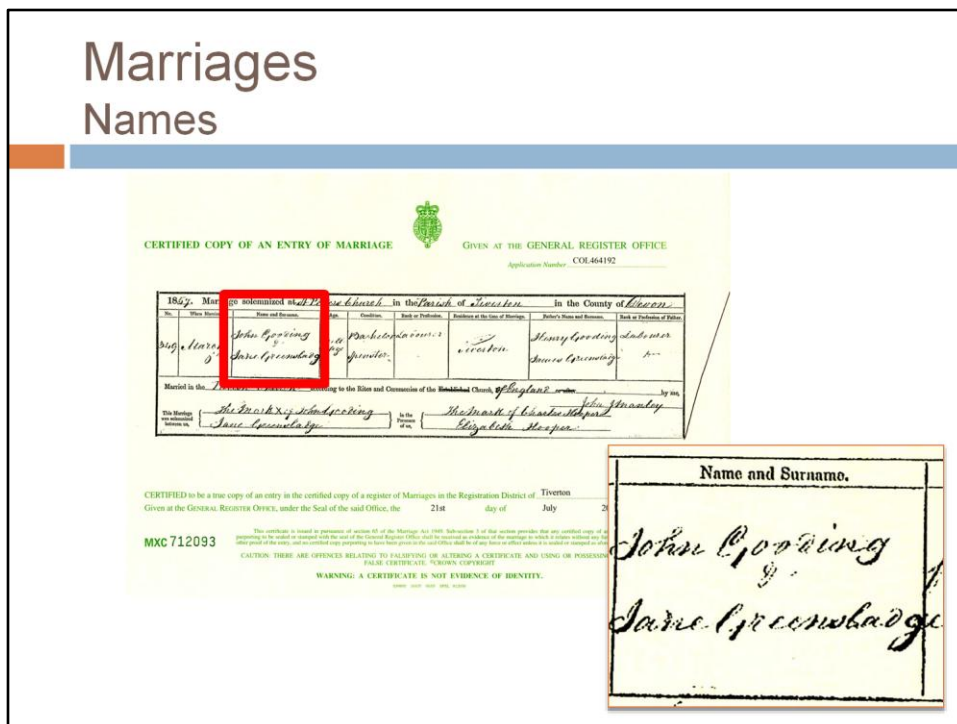 Marriages
Names
CERTIFIED COPY OF AN ENTRY OF MARRIAGE
GIVEN AT THE GENERAL REGISTER OFFICE
Application Number COL464192
Marriage solemnized at St Peters Church in the Parish of Tiverton in the County of Devon
No. When Married Name and Surname. Age. Condition. Rank or Profession. Residence at the time of Marriage. Father's Name and Surname. Rank or Profession of Father.
349 John Gooding Bachelor Labourer Henry Gooding Labourer
&
Jane Greensladge Spinster Tiverton James Greensladge
Married in the to the Rites and Ceremonies of the Established Church, of England by me,
John Manley
This Marriage was solemnized between us, The Mark X of John Gooding
Jane Greensladge
In the Presence of us, The Mark of Charles Hooper
Elizabeth Hooper
CERTIFIED to be a true copy of an entry in the certified copy of a register of Marriages in the Registration District of Tiverton
Given at the GENERAL REGISTER OFFICE, under the Seal of the said Office, the 21st day of July 20
MXC 712093
This certificate is issued in pursuance of section 65 of the Marriage Act 1949.
CAUTION: THERE ARE OFFENCES RELATING TO FALSIFYING OR ALTERING A CERTIFICATE AND USING OR POSSESSING
FALSE CERTIFICATE. ©CROWN COPYRIGHT
WARNING: A CERTIFICATE IS NOT EVIDENCE OF IDENTITY.
Name and Surname.
John Gooding
&
Jane Greensladge